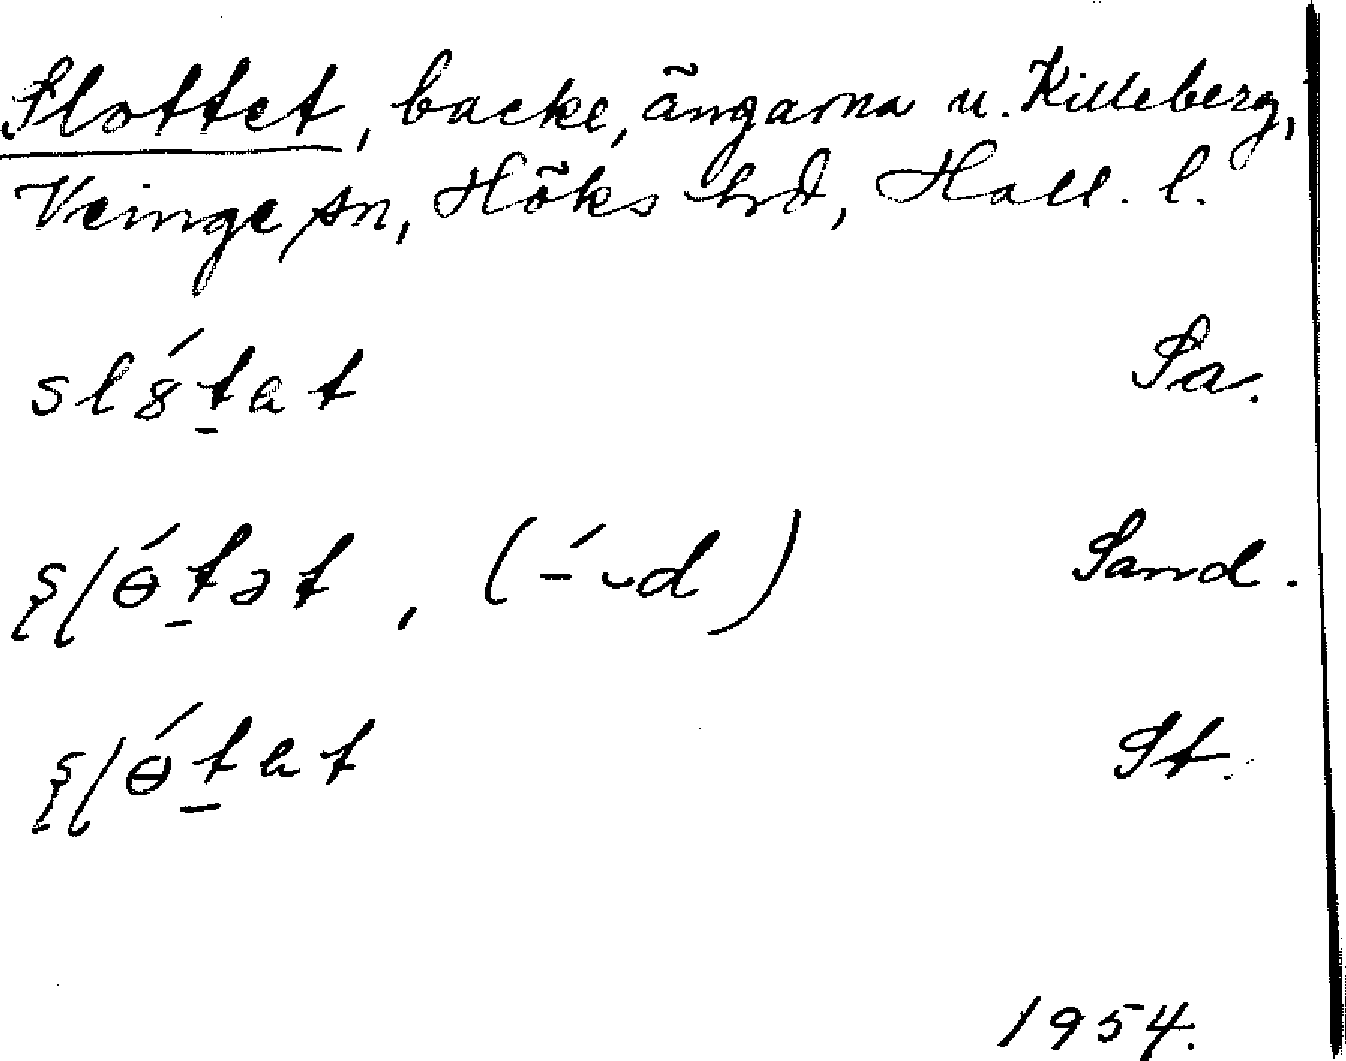 Slottet, backe, ängarna u. Killeberg,
Veinge sn, Höks hd, Hall. l.
sl8́t̠at Sa.
Sand.
St.
1954.